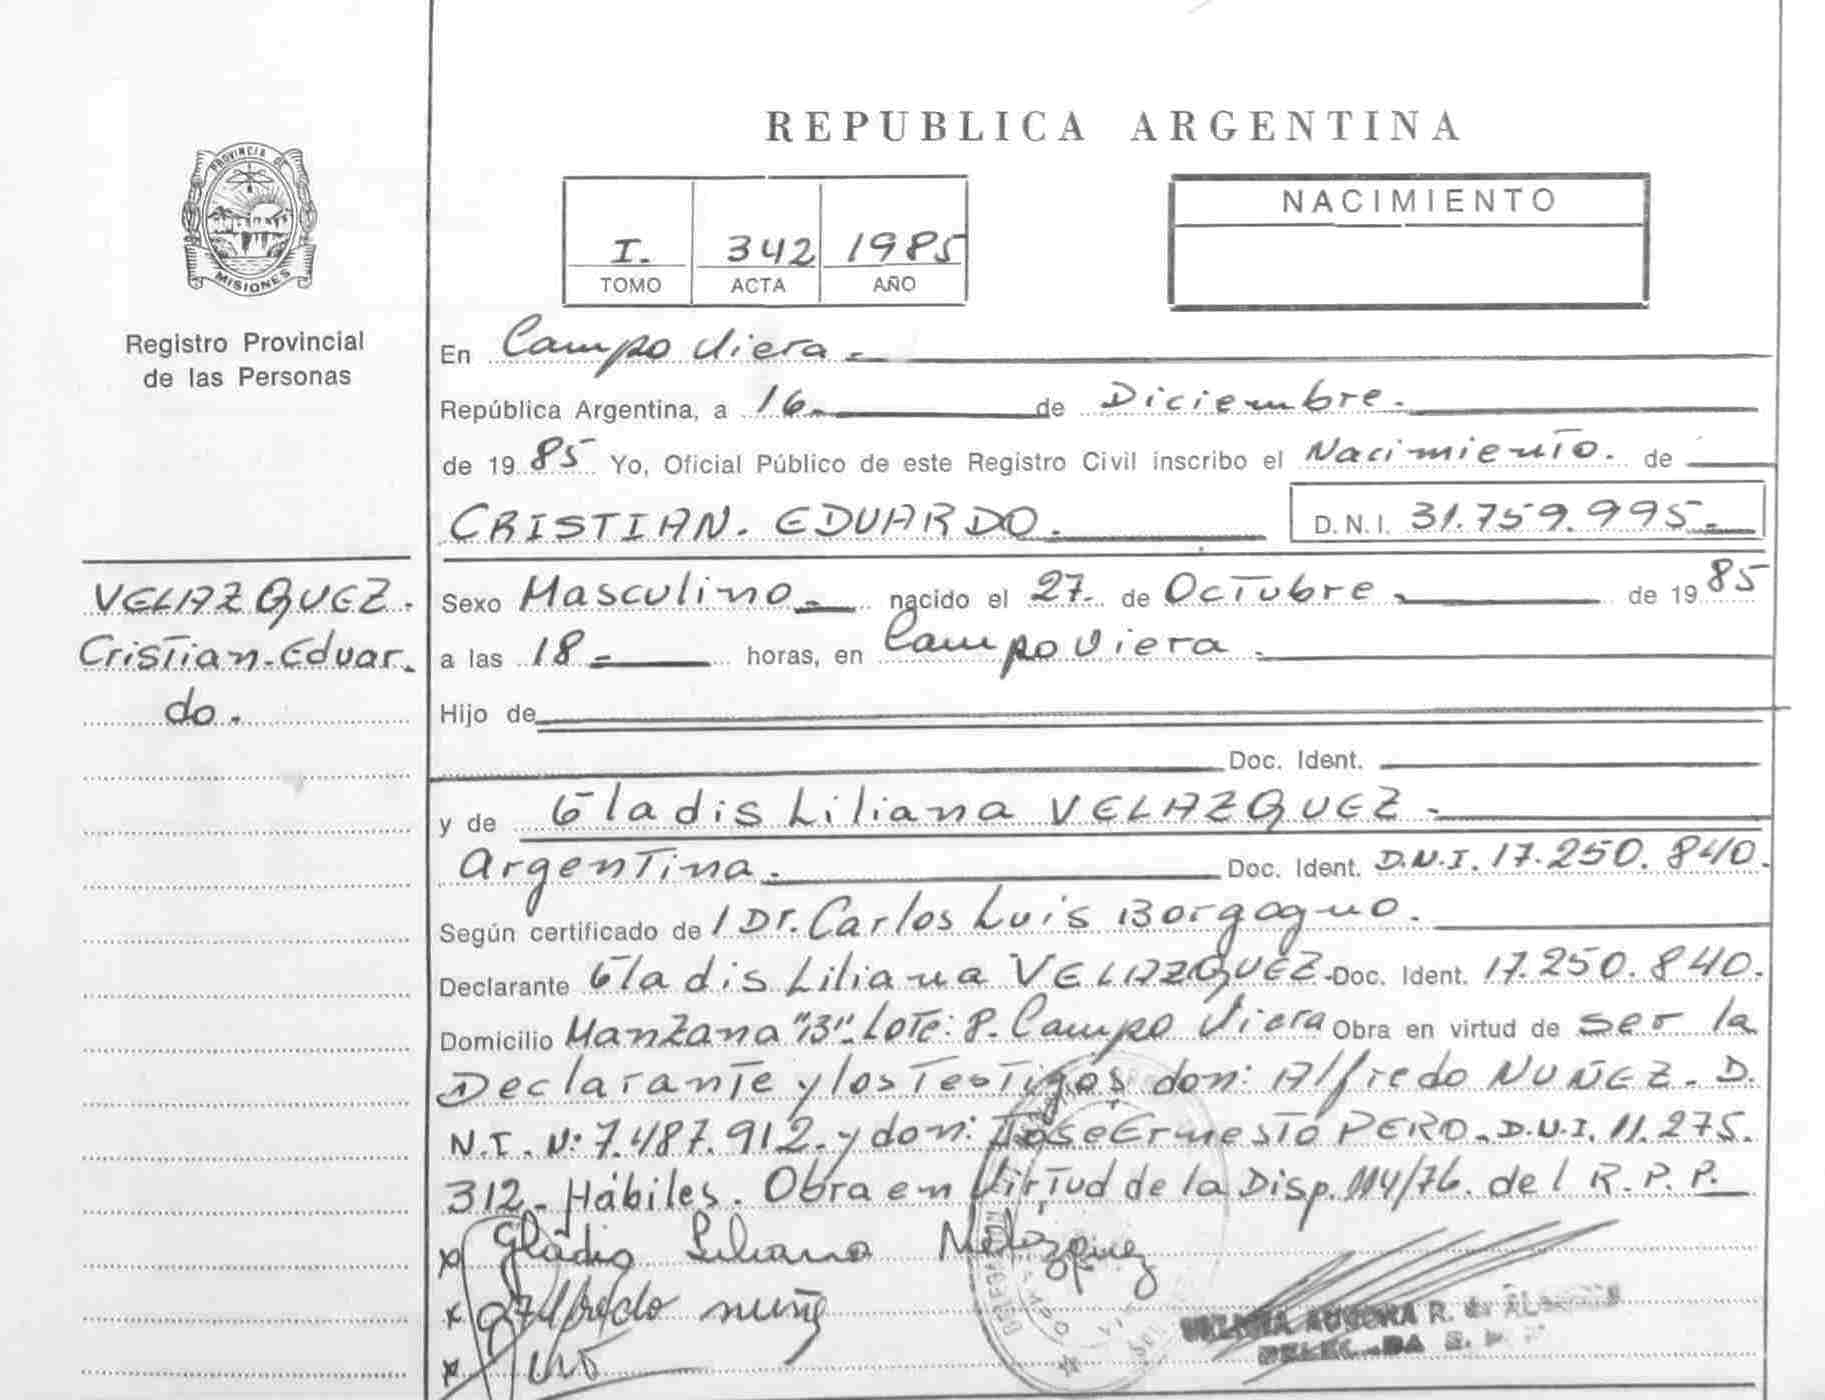 REPUBLICA ARGENTINA
PROVINCIA DE
MISIONES
Registro Provincial
de las Personas
I. 342 1985
TOMO ACTA AÑO
NACIMIENTO
En Campo Viera.
República Argentina, a 16 de Diciembre.
de 19 85 Yo, Oficial Público de este Registro Civil inscribo el Nacimiento. de
CRISTIAN. EDUARDO. D.N.I. 31.759.995-
VELAZQUEZ.
Cristian-Eduar.
do.
Sexo Masculino nacido el 27. de Octubre de 19 85
a las 18 horas, en Campo Viera.
Hijo de
Doc. Ident.
y de Gladis Liliana VELAZQUEZ.
Argentina. Doc. Ident. D.N.I. 17.250.840.
Según certificado de l Dr. Carlos Luis Borgogno.
Declarante Gladis Liliana VELAZQUEZ. Doc. Ident. 17.250.840.
Domicilio Manzana "B". Lote: 8. Campo Viera Obra en virtud de ser la
Declarante y los Testigos don: Alfredo NUÑEZ. D.
N.I. N: 7.487.912. y don: Jose Ernesto PERO. D.N.I. 11.275.
312- Hábiles. Obra en Virtud de la Disp. 114/76. del R.P.P.
x Gladis Liliana Velazquez
x Alfredo nuñez
x
AURORA R. de